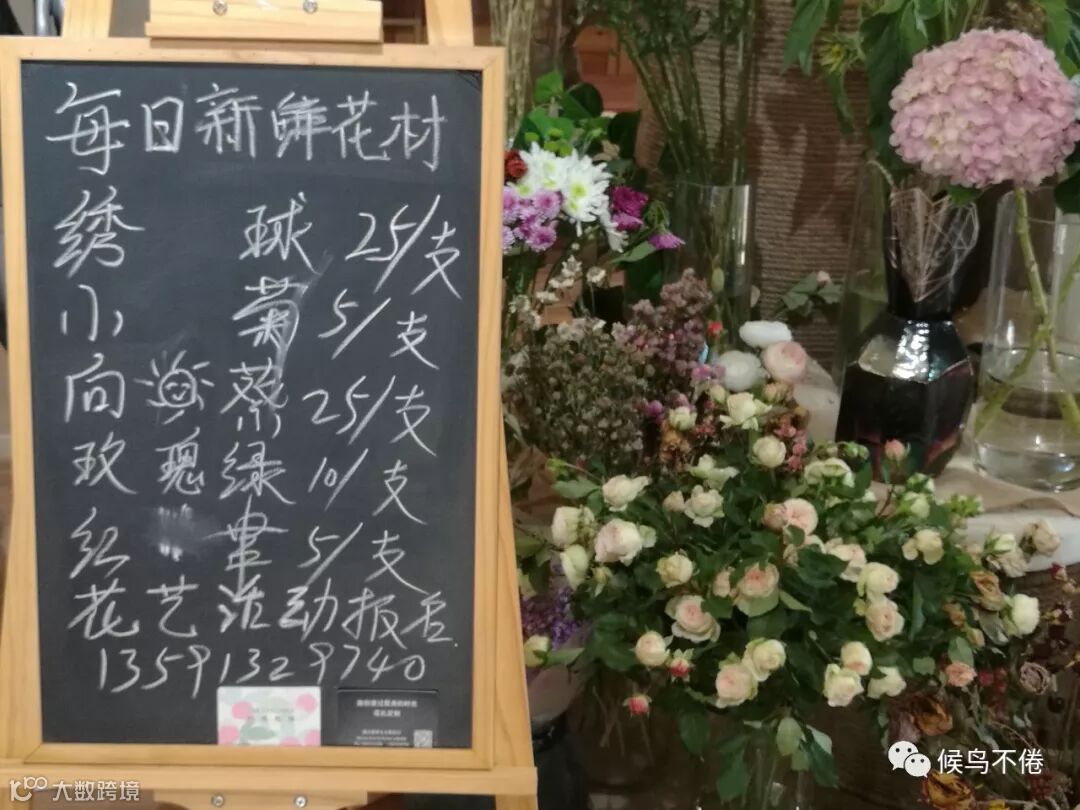 每日新鲜花材
绣 球 25/支
小 菊 5/支
向 葵 25/支
玫瑰 绿 10/支
红 5/支
花艺活动报名
13591329740
候鸟不倦
大数跨境